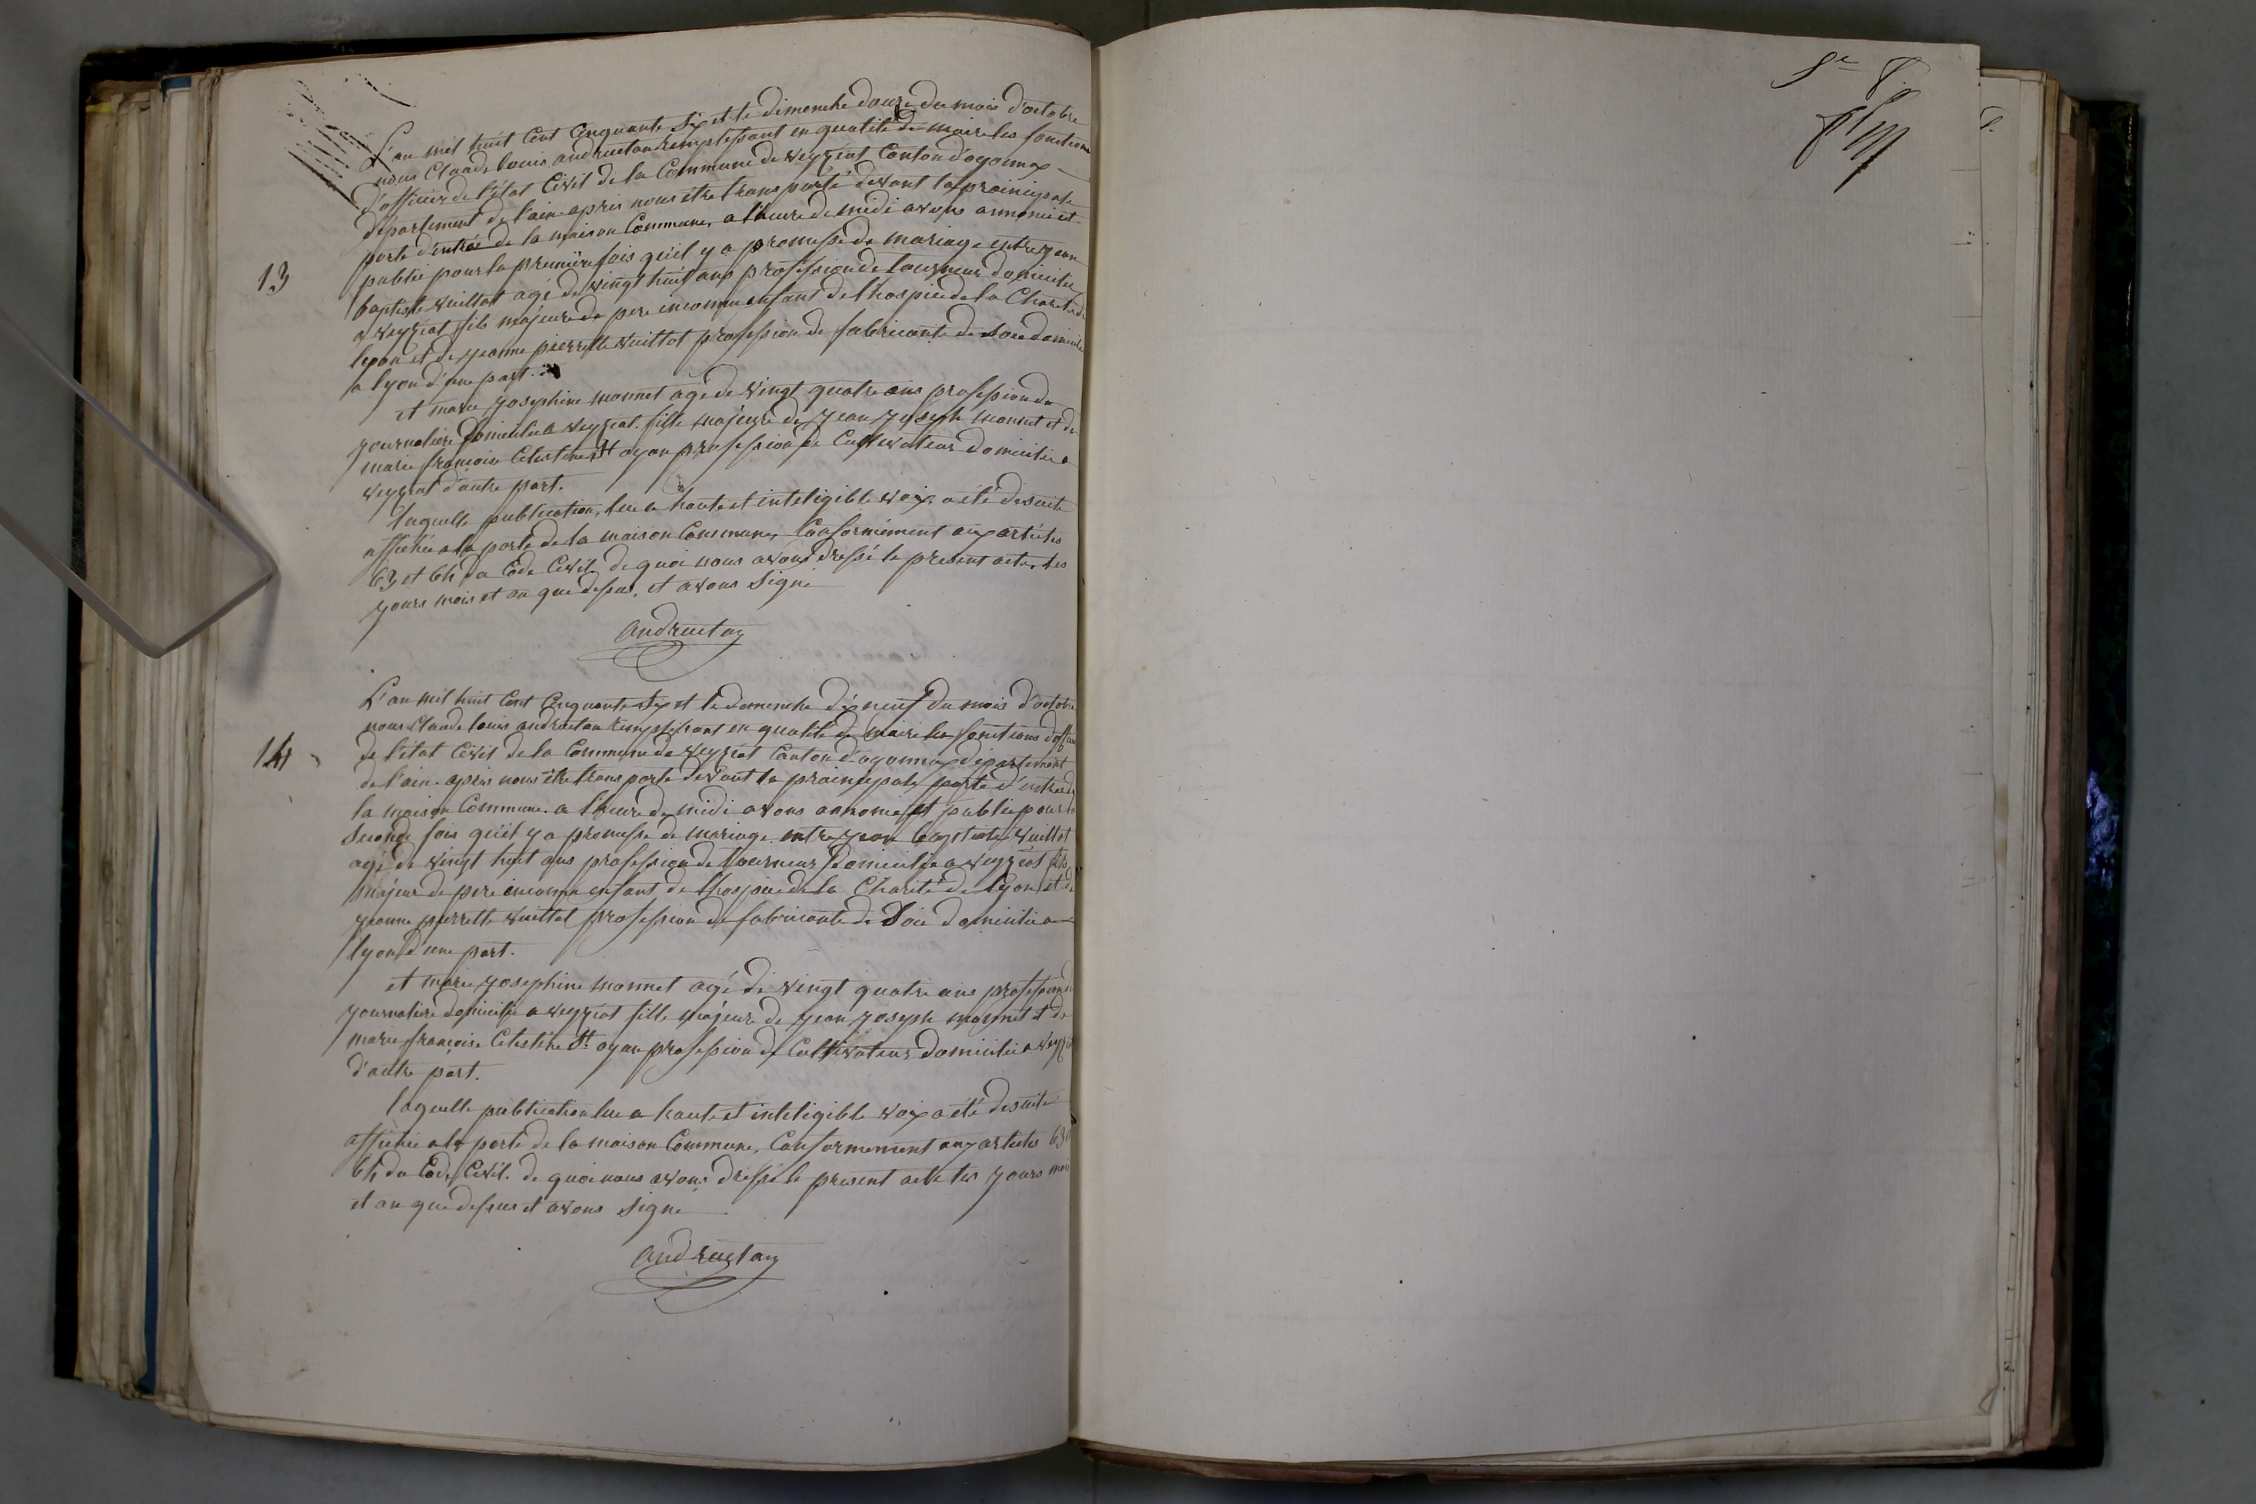 L'an mil huit Cent Cinquante Six et le dimenche douze du mois d'octobre
nous Claude louis andruetan remplissant en qualité de maire les fonctions
d'officier de l'état Civil de la Commune de veyziat Canton d'oyonnax
département de l'ain apres nous être transporté devant la prainsipale
porte d'entrée de la maison Commune, a l'heure de midi avons annoncé et
publié pour la première fois qu'il y a promesse de mariage entre jean
13
baptiste vuillot agé de vingt huit ans profession de tourneur domicilié
a veyziat fils majeur de pere inconnu enfant de l'hospice de la Charité de
lyon et de jeanne pierrette vuillot profession de fabricante de Soie domicilié
a lyon d'une part.
et marie josephine monnet agé de vingt quatre ans profession de
journalière domicilié a veyziat fille majeure de jean joseph monnet et de
marie francoise Celestine St oyan profession de Cultivateur domicilié a
veyziat d'autre part.
laquelle publication, lue a haute et inteligible voix, a été desuite
affichée a la porte de la maison Commune, Conformément aux articles
63 et 64 du Code Civil de quoi nous avons dressé le present acte, les
jours mois et an que dessus, et avons Signé
andruetan
L'an mil huit Cent Cinquante Six et le dimenche dix neuf du mois d'octobre
nous Claude louis andruetan remplissant en qualité de maire les fonctions d'officier
14
de l'état Civil de la Commune de veyziat Canton d'oyonnax département
de l'ain apres nous être transporté devant la prainsipale porte d'entrée de
la maison Commune a l'heure de midi avons annoncé et publié pour la
Seconde fois qu'il y a promesse de mariage entre jean baptiste vuillot
agé de vingt huit ans profession de tourneur domicilié a veyziat fils
majeur de pere inconnu enfant de l'hospice de la Charité de lyon et de
jeanne pierrette vuillot profession de fabricante de Soie domicilié a
lyon d'une part.
et marie josephine monnet agé de vingt quatre ans profession de
journalière domicilié a veyziat fille majeure de jean joseph monnet et de
marie francoise Celestine St oyan profession de Cultivateur domicilié a veyziat
d'autre part.
laquelle publication lue a haute et inteligible voix a été desuite
affichée a la porte de la maison Commune, Conformement aux articles 63 et
64 du Code Civil. de quoi nous avons dressé le present acte les jours mois
et an que dessus et avons Signé
andruetan